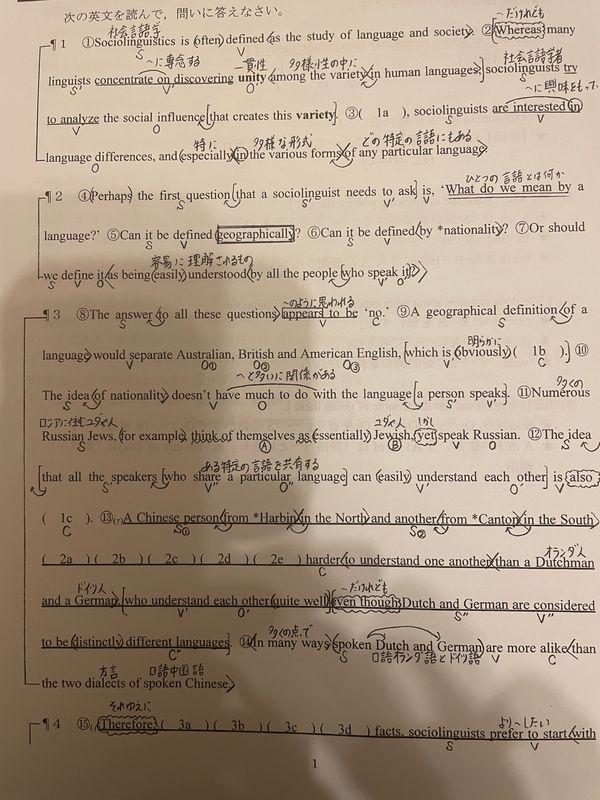 次の英文を読んで，問いに答えなさい。
社会言語学 ～だけれども
¶1 ①Sociolinguistics is (often) defined <as the study of language and society>. ②[Whereas many
S V
～に専念する 一貫性 多様性の中に 社会言語学者
linguists concentrate on discovering unity <among the variety> <in human languages>,] sociolinguists try
S' V' O' S
～に興味をもって
to analyze the social influence [that creates this variety]. ③( 1a ), sociolinguists are interested (in)
V O S V
特に 多様な形式 どの特定の言語にもある
language differences, and (especially) (in) the various forms <of any particular language>.
O O
ひとつの言語とは何か
¶2 ④(Perhaps) the first question [that a sociolinguist needs to ask] is, ‘What do we mean by a
S S' V' V
language?’ ⑤Can it be defined (geographically)? ⑥Can it be defined <by *nationality>? ⑦Or should
S V S V
容易に理解されるもの
we define it <as being (easily) understood <by all the people [who speak it]>>?
S V O
～のように思われる
¶3 ⑧The answer <to all these questions> appears to be ‘no.’ ⑨A geographical definition <of a
S V C S
明らかに
language> would separate Australian, British and American English, [which is (obviously) ( 1b ).] ⑩
V O① O② O③
～と多いに関係がある
The idea <of nationality> doesn't have much to do with the language [a person speaks]. ⑪Numerous
S V O S' V'
多くの
ロシアに住むユダヤ人 ユダヤ人 しかし
Russian Jews, <for example> think of themselves as (essentially) Jewish, (yet) speak Russian. ⑫The idea
S V A B V O S
ある特定の言語を共有する
[that all the speakers [who share a particular language] can (easily) understand each other] is (also)
S' V'' O'' V' O' V
( 1c ). ⑬(7)A Chinese person <from *Harbin> <in the North> and another <from *Canton> <in the South>
C S① S②
オランダ人
( 2a ) ( 2b ) ( 2c ) ( 2d ) ( 2e ) harder <to understand one another> <than a Dutchman
C
ドイツ人 ～だけれども
and a German> [who understand each other (quite well)] [even though Dutch and German are considered
V' O' S'' V''
多くの点で
to be (distinctly) different languages]. ⑭<In many ways> spoken Dutch and German are more alike <than
C'' S V C
方言 口語中国語 口語オランダ語とドイツ語
the two dialects of spoken Chinese>.
それゆえに より～したい
¶4 ⑮Therefore ( 3a ) ( 3b ) ( 3c ) ( 3d ) facts, sociolinguists prefer to start <with
S V
1